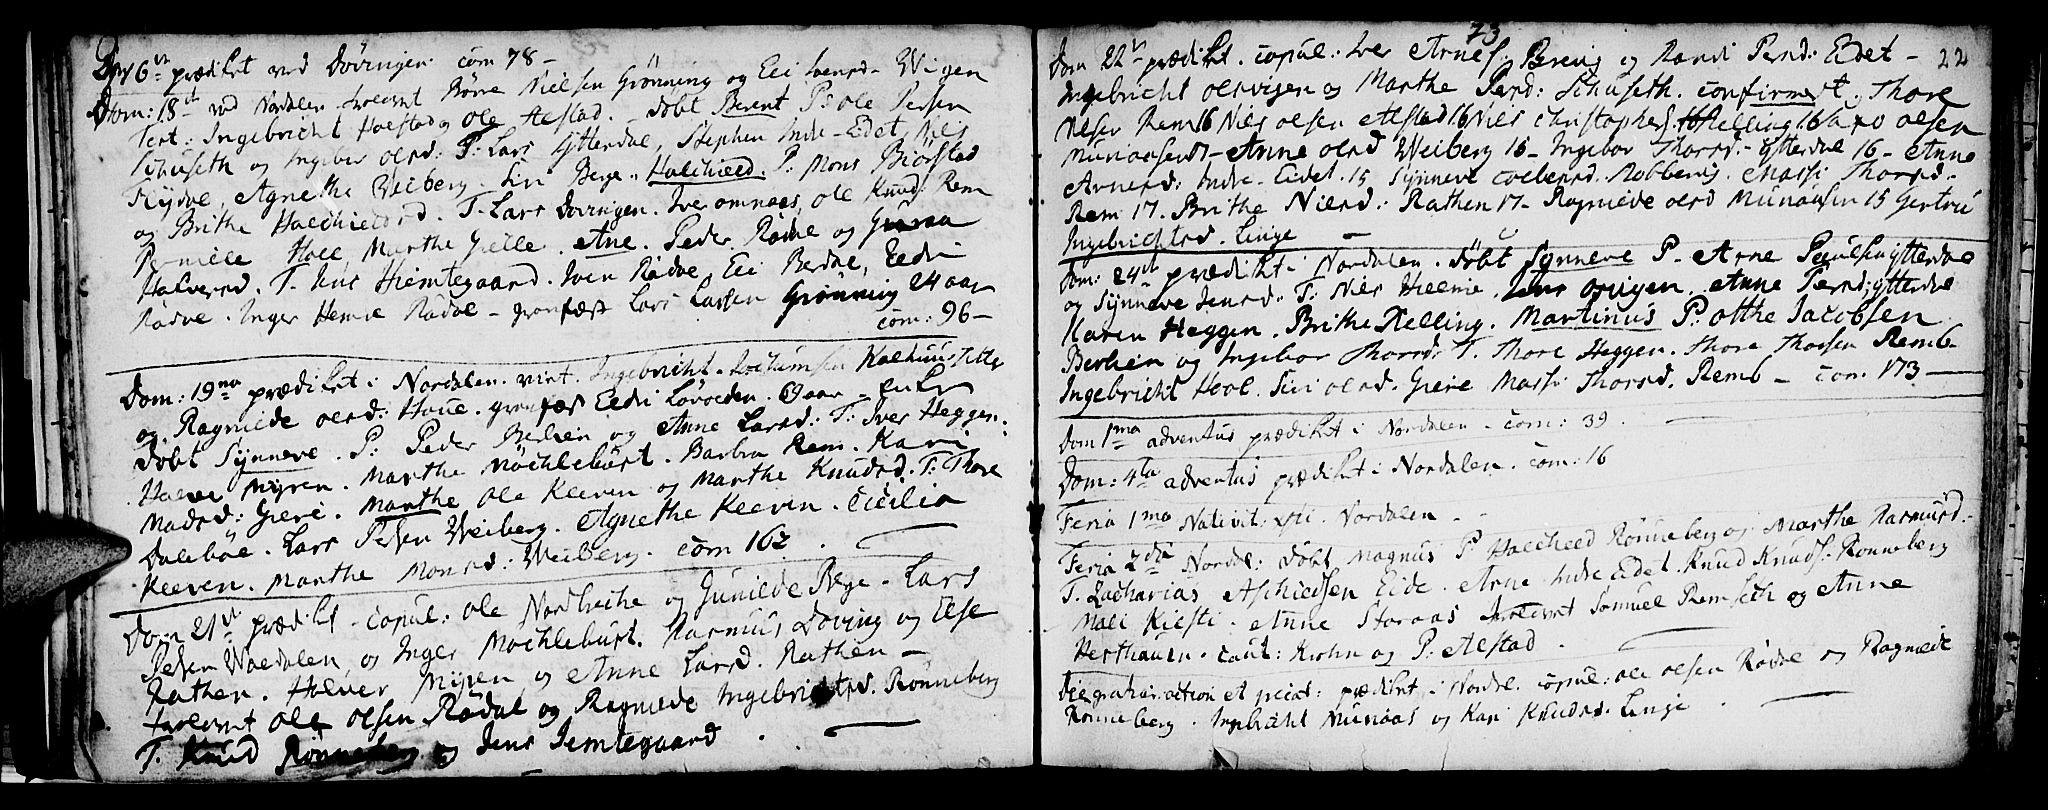 Dom 16 prædiket ved Døvingen. com 78 -
Dom: 18 ved Nordalen. trolovet Børre Nielsen Grønning og Eli Iversd. Wigen
Test: Ingebricht Hoelstad og Ole Alstad. døbt Berent P: Ole Persen
Schuseth og Ingebor olsd. T: Lars Ytterdal, Stephen Indr-Edet, Niels
Flydal, Agnethe Weiberg. Siri Berge. Halchield. P. Mons Biørstad
og Brithe Halchieldsd. T. Lars Døvingen. Iver omnaas, ole Knuds: Rem
Pernille Hoel, Marthe Gielle. Ane. Peder Rødal og Guroa
Halversd. T. Jens Hiemtegaard. Sven Rødal, Eli Berdal, Eldri
Rødal. Inger Hemre Rødal - jordfæst Lars Larsen Grønning 24 aar
com: 96 -
Dom: 19na prædiket i Nordalen. Ingebricht Kalhuus
og Ragnilde olsd: Houe. jordfæst Eldri Løvolden. 9 aar -
døbt Synneve. P: Peder Berlien og Anne Larsd: T: Iver Heggen.
Halver Myren. Marthe Møchlebust. Barbra Rem. Kari
Madsd: Giere. Marthe Ole Kleven og Marthe Knudsd. T: Thore
Dalebøe. Lars Persen Weiberg. Agnethe Kleven. Cicilia
Kleven. Marthe Monsd: Weiberg. com 162.
Dom 21 prædiket - copul: ole Nordbrike og Gunilde Bege. Lars
Persen Waldalen og Inger Møchlebust. Rasmus Døving og Else
Rathen. Halver Myren og Anne Larsd. Rathen -
trolovet ole olsen Rødal og Ragnilde Ingebrichtsd. Rønneberg
T. Knud Rønneberg og Jens Jemtegaard.
73
22
Dom 22 prædiket. copul: Iver Arnes. Berevig og Randi Persd: Eidet -
Ingebricht olsvigen og Marthe Persd: Schuseth. confirmert. Thore
Nilsen Rem 16 Niels olsen Alstad 16 Niels Christophers Relling 16 Aro olsen
Munaasen 17 - Anne olsd Weiberg 16 - Ingebor Thorsd. Ytterdal 16 - Anne
Arnesd: Indr-Eidet. 15 Synneve Robbervig. Massi Thorsd.
Rem 17. Brithe Nielsd: Rathen 17 - Ragnilde olsd Munaasen 15 Gertru
Ingebrichtsd. Linge -
Dom: 24 prædiket i Nordalen. døbt Synneve P. Arne Paulsen Ytterdal
og Synneve Jensd. T: Niels Hielme. Jens Anne Persd: Ytterdal
Karen Heggen. Brithe Relling. Martinus P: Otthe Jacobsen
Berlien og Ingebor Thorsd. T. Thore Heggen. Thore Thoesen Remb-
Ingebricht Hool. Siri olsd. Giere Massi Thorsd. Remb - com: 173 -
Dom 1ma adventus prædiket i Nordalen - com: 39.
Dom: 4ta adventus prædiket i Nordalen. com: 16
Feria 1ma Nativit: Xti. Nordalen - -
Feria 2da Nordal: døbt Magnus P. Halchield Rønneberg og Marthe Rasmusd:
T. Zacharias Aschieldsen Eide. Arne Indr Eidet. Knud Knuds: Rønneberg
Mali Kilsti. Anne Storaas trolovet Samuel Remseth og Anne
Herthausn. caut: Krohn og P: Alstad.
Die gratiar: action et prædiket i Nordal. copul: ole olsen Rødal og Ragnilde
Rønneberg. Ingebricht Munaas og Kari Knudsd. Linge.